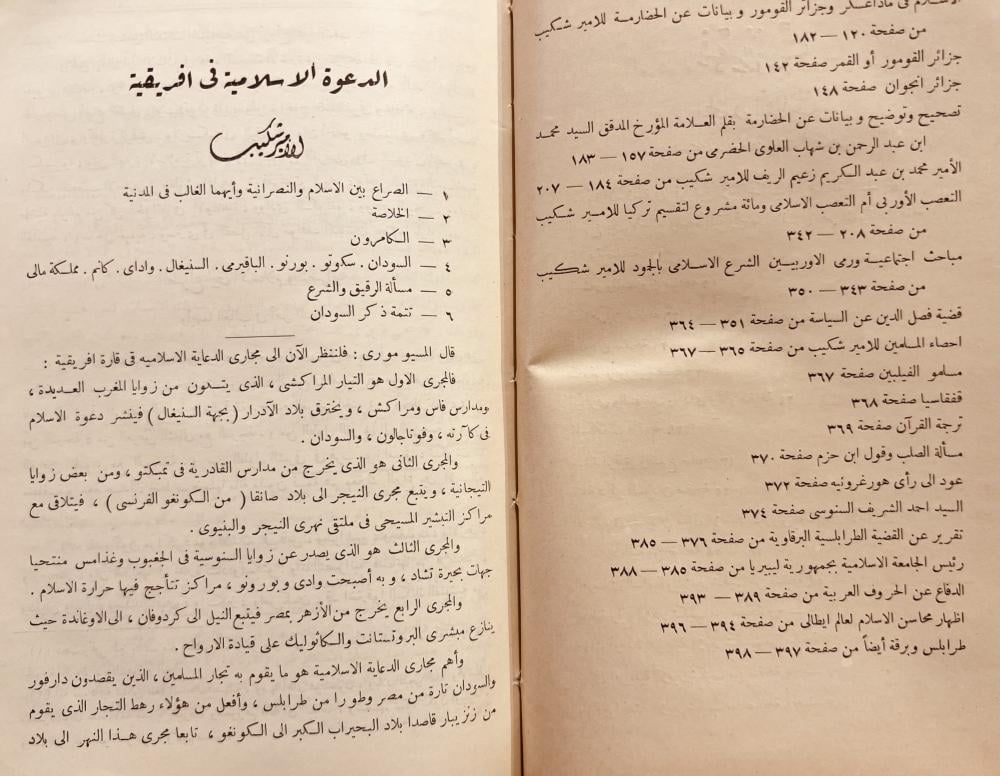 الاسلام فى مداغسكر وجزائر القومور و بيانات عن الحضارمة للامير شكيب
من صفحة ١٢٠ — ١٨٢
جزائر القومور أو القمر صفحة ١٤٢
جزائر انجوان صفحة ١٤٨
تصحيح وتوضيح و بيانات عن الحضارمة بقلم العلامة المؤرخ المدقق السيد محمد
ابن عبد الرحمن بن شهاب العلوى الحضرمى من صفحة ١٥٧ — ١٨٣
الأمير محمد بن عبد الكريم زعيم الريف للامير شكيب من صفحة ١٨٤ — ٢٠٧
التعصب الأوربى أم التعصب الاسلامى ومائة مشروع لتقسيم تركيا للامير شكيب
من صفحة ٢٠٨ — ٣٤٢
مباحث اجتماعية ورمى الاوربيين الشرع الاسلامى بالجمود للامير شكيب
من صفحة ٣٤٣ — ٣٥٠
قضية فصل الدين عن السياسة من صفحة ٣٥١ — ٣٦٤
احصاء المسلمين للامير شكيب من صفحة ٣٦٥ — ٣٦٧
مسلمو الفيلبين صفحة ٣٦٧
قفقاسيا صفحة ٣٦٨
ترجمة القرآن صفحة ٣٦٩
مسألة الصلب وقول ابن حزم صفحة ٣٧٠
عود الى رأى هورغرونيه صفحة ٣٧٢
السيد احمد الشريف السنوسى صفحة ٣٧٤
تقرير عن القضية الطرابلسية البرقاوية من صفحة ٣٧٦ — ٣٨٥
رئيس الجامعة الاسلامية بجمهورية ليبيريا من صفحة ٣٨٥ — ٣٨٨
الدفاع عن الحروف العربية من صفحة ٣٨٩ — ٣٩٣
اظهار محاسن الاسلام لعالم ايطالى من صفحة ٣٩٤ — ٣٩٦
طرابلس وبرقة أيضاً من صفحة ٣٩٧ — ٣٩٨
الدعوة الاسلامية فى افريقية
للامير شكيب
١ — الصراع بين الاسلام والنصرانية وأيهما الغالب فى المدنية
٢ — الخلاصة
٣ — الكامرون
٤ — السودان . سكوتو . بورنو . الباقيرمى . السنيغال . واداى . كانم . مملكة مالى
٥ — مسألة الرقيق والشرع
٦ — تتمة ذكر السودان
قال المسيو مورى : فلننظر الآن الى مجارى الدعاية الاسلاميه فى قارة افريقية :
فالمجرى الاول هو التيار المراكشى ، الذى يتدون من زوايا المغرب العديدة ،
ومدارس فاس ومراكش ، و يخترق بلاد الآدرار ( بجهة السنيغال ) فينشر دعوة الاسلام
فى كآرته ، وفوتاجالون ، والسودان .
والمجرى الثانى هو الذى يخرج من مدارس القادرية فى تمبكتو ، ومن بعض زوايا
التيجانية ، ويتبع مجرى النيجر الى بلاد صانقا ( من الكونغو الفرنسى ) ، فيتلاقى مع
مراكز التبشير المسيحى فى ملتقى نهرى النيجر والبنيوى .
والمجرى الثالث هو الذى يصدر عن زوايا السنوسية فى الجغبوب وغدامس منتحيا
جهات بحيرة تشاد ، و به أصبحت وادى و بورونو ، مراكز تتأجج فيها حرارة الاسلام .
والمجرى الرابع يخرج من الأزهر بمصر فيتبع النيل الى كردوفان ، الى الاوغاندة حيث
ينازع مبشرى البروتستانت والكاثوليك على قيادة الارواح .
وأهم مجارى الدعاية الاسلامية هو ما يقوم به تجار المسلمين ، الذين يقصدون دارفور
والسودان تارة من مصر وطورا من طرابلس ، وأفعل من هؤلاء رهط التجار الذى يقوم
من زنزيبار قاصدا بلاد البحيراب الكبر الى الكونغو ، تابعا مجرى هذا النهر الى بلاد